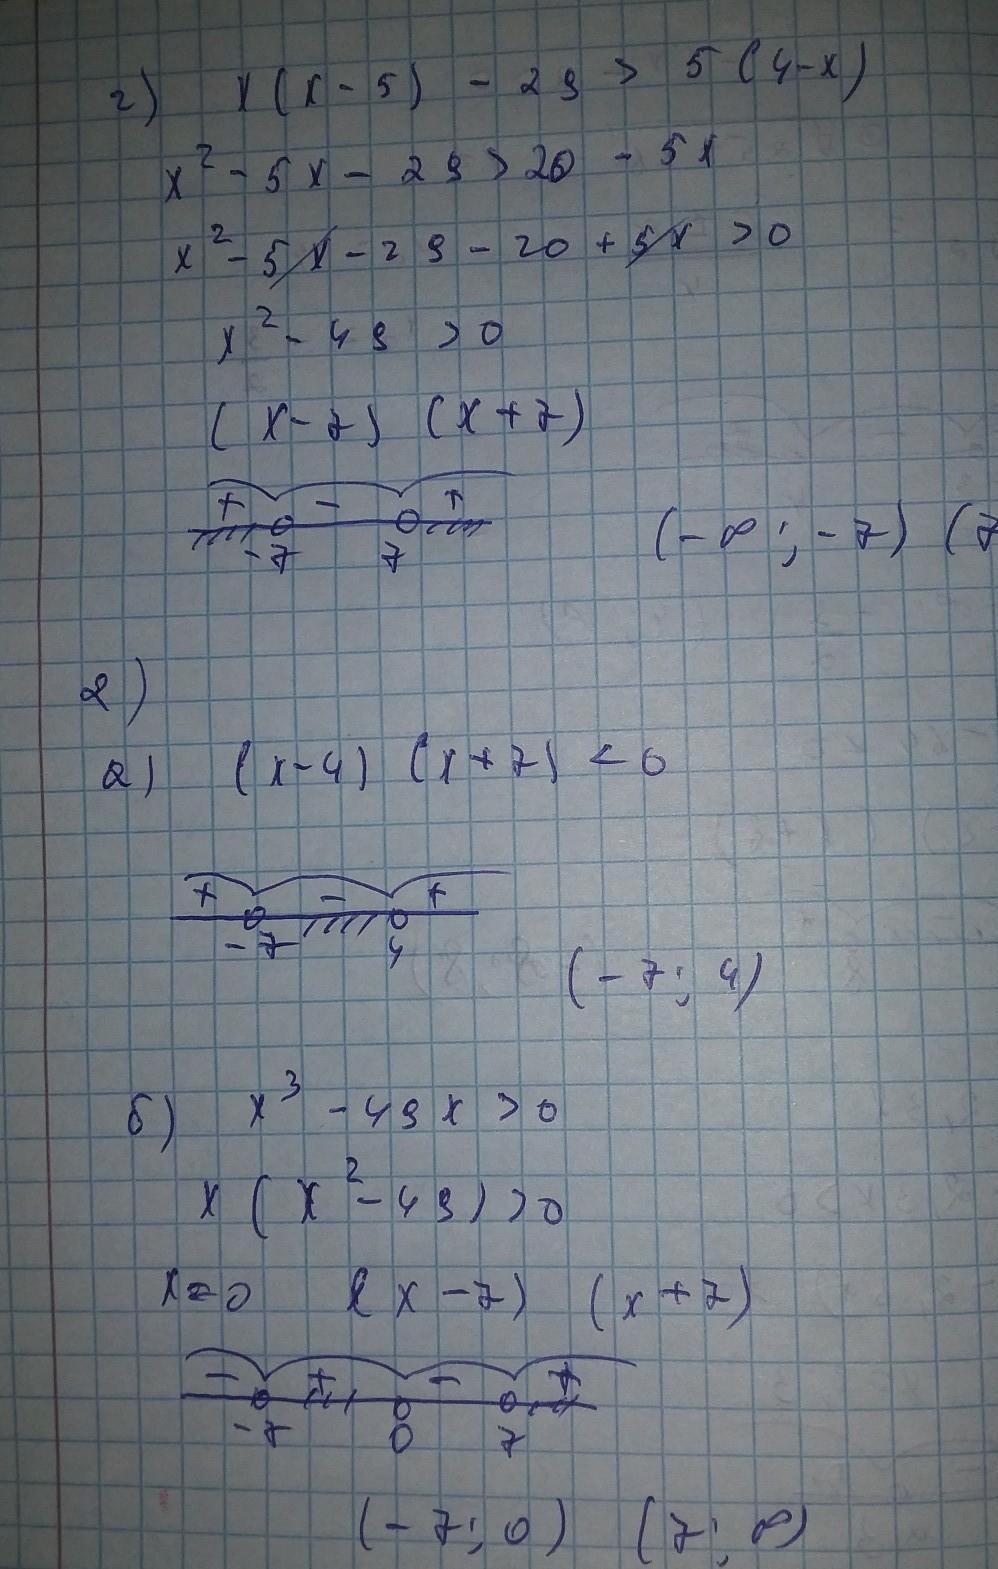 г) x(x-5) - 29 > 5(4-x)
x² - 5x - 29 > 20 - 5x
x² - 5x - 29 - 20 + 5x > 0
x² - 49 > 0
(x-7) (x+7)
+ - +
-7 7
(-∞; -7) (7
2)
а) (x-4) (x+7) < 0
+ - +
-7 4
(-7; 4)
б) x³ - 49x > 0
x (x² - 49) > 0
x=0 (x-7) (x+7)
- + - +
-7 0 7
(-7; 0) (7; ∞)